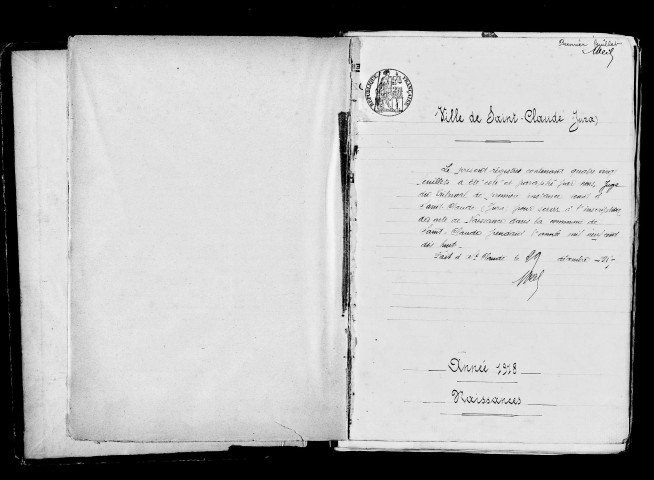 Premier feuillet
RÉPUBLIQUE FRANÇAISE
Ville de Saint-Claude (Jura)
Le présent registre contenant quatre vingt
feuillets a été coté et paraphé par nous, Juge
du tribunal de première instance
Saint-Claude (Jura) pour servir à l'inscription
des actes de Naissance dans la commune de
Saint-Claude pendant l'année mil neuf cent
dix huit.
Fait à St Claude le 29 décembre 1917
Année 1918
Naissances